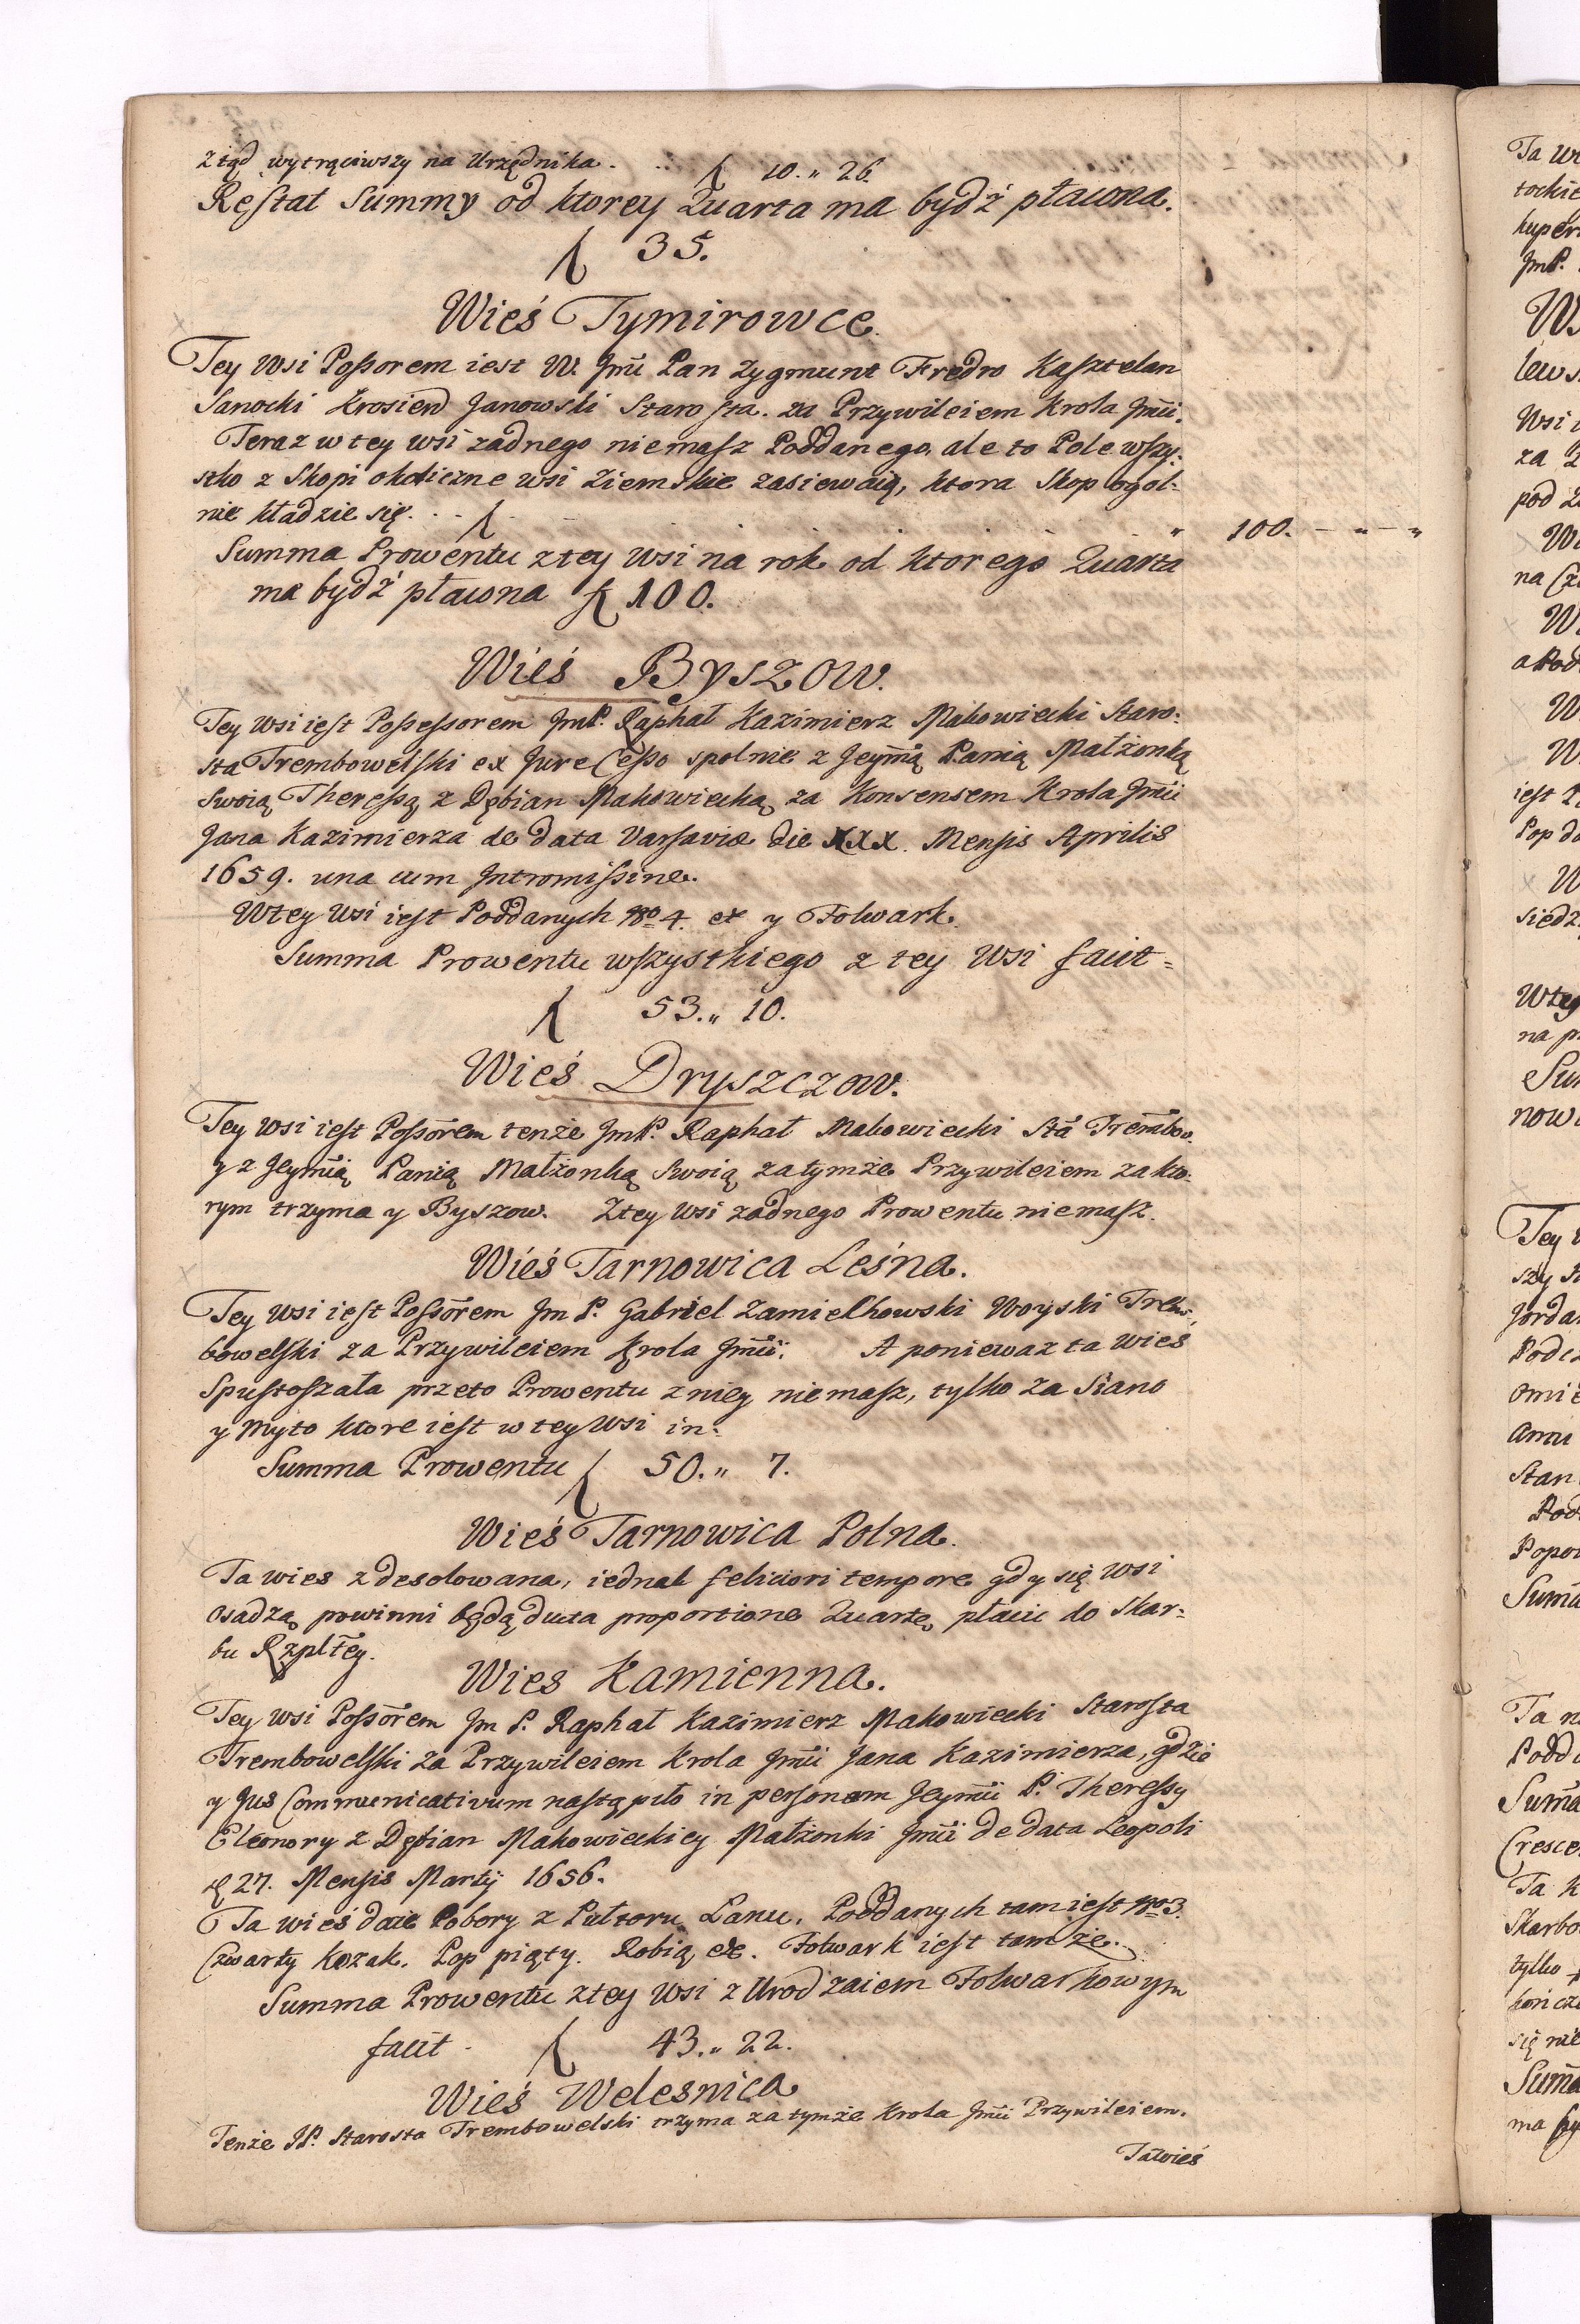 ztąd wytrąciwszy na Urzędnika . .. f 10. „ 26.
Restat Summy od ktorey Quarta ma bydź płacona.
f 35.
Wieś Tymirowce.
Tey Wsi Possorem iest W. Jmći Pan Zygmunt Fredro Kasztelan
Sanocki Krosien Janowski Starosta. za Przywileiem Krola Jmći.
Teraz w tey wsi zadnego niemasz Poddanego, ale to Pole wszy-
stko z Skopi okoliczne wsi Ziemskie zasiewaią, ktora Skop ogol-
nie kładzie się. . . f „ 100. – „ – „
Summa Prowentu z tey Wsi na rok od ktorego Quarta
ma bydź płacona f 100.
Wieś Byszow.
Tey Wsi iest Possessorem JmP. Raphał Kazimierz Makowiecki Staro-
sta Trembowelski ex Jure Cesso spolnie z Jeymćią Panią Małżonką
Swoią Theressą z Dębian Makowiecką za Konsensem Krola Jmći
Jana Kazimierza de data Varsaviæ die XXX. Mensis Aprilis
1659. una cum Intromissine.
W tey Wsi iest Poddanych No 4. et y Folwark.
Summa Prowentu wszystkiego z tey Wsi facit =
f 53. „ 10.
Wieś Dryszczow.
Tey wsi iest Possorem tenże JmP. Raphał Makowiecki Sta Trembow.
y z Jeymćią Panią Małżonką Swoią za tymże Przywileiem za kto-
rym trzyma y Byszow. Z tey Wsi zadnego Prowentu niemasz.
Wieś Tarnowica Leśna.
Tey wsi iest Possorem Jm P. Gabriel Zamiechowski Woyski Trem-
bowelski za Przywileiem Krola Jmći. A poniewaz ta wies
Spustoszała przeto Prowentu z niey niemasz, tylko za Siano
y Myto ktore iest w tey Wsi in-
Summa Prowentu f 50. „ 7.
Wieś Tarnowica Polna.
Ta wies zdesolowana, iednak feliciori tempore gdy się wsi
osadzą powinni będą ducta proportione Quartę płacic do Skar-
bu Rzpltey.
Wies Kamienna.
Tey wsi Possorem Jm P. Raphał Kazimierz Makowiecki Starosta
Trembowelski za Przywileiem Krola Jmći Jana Kazimierza, gdzie
y Jus Communicativum nastąpiło in personam Jeymći P. Theressy
Eleonory z Dębian Makowieckiey Małżonki Jmći de data Leopoli
d 27. Mensis Martij 1656.
Ta wieś daie Pobory z Pułtoru Łanu. Poddanych tam iest No 3.
Czwarty Kozak. Pop piąty. Robią etc. Folwark iest tamże.
Summa Prowentu z tey Wsi z Urodzaiem Folwarkowym
facit . f 43. „ 22.
Wieś Welesnica
Tenże JP. Starosta Trembowelski trzyma za tymże Krola Jmći Przywileiem.
Ta wieś